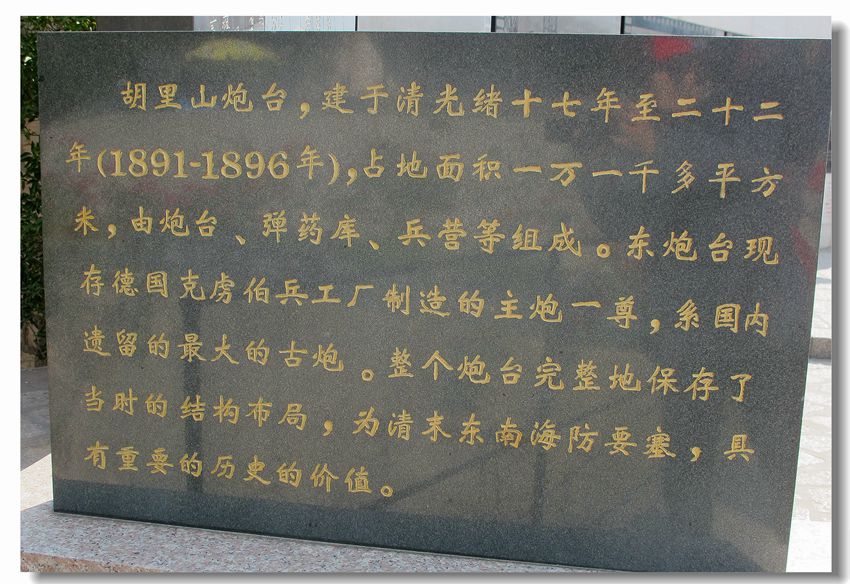 胡里山炮台，建于清光绪十七年至二十二
年(1891-1896年)，占地面积一万一千多平方
米，由炮台、弹药库、兵营等组成。东炮台现
存德国克虏伯兵工厂制造的主炮一尊，系国内
遗留的最大的古炮。整个炮台完整地保存了
当时的结构布局，为清末东南海防要塞，具
有重要的历史的价值。